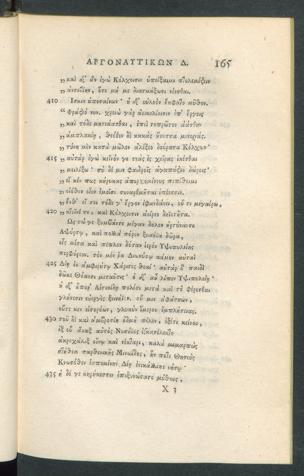 ΑΡΓΟΝΑΥΤΙΚΩΝ Δ. 165
„ καὶ δ' ἂν ἐγὼ Κόλχοισιν ὑπείξαιμι πτολεμίζειν
„ ἀντιβίην, ὅτε μή με διὲξ εἰῶσι νέεσθαι.
410 Ἴσκεν ὑποσσαίνων· ἡ δ' οὐλοὸν ἔκφατο μῦθον.
„ Φράζεο νυν. χρειὼ γὰρ ἀεικελίοισιν ἐπ' ἔργοις
„ καὶ τόδε μητίσασθαι, ἐπεὶ τοπρῶτον ἀάσθην
„ ἀμπλακίῃ, θεόθεν δὲ κακὰς ἤνυσσα μενοινάς.
„ τύνη μὲν κατὰ μῶλον ἀλέξεο δούρατα Κόλχων·
415 „ αὐτὰρ ἐγὼ κεῖνόν γε τεὰς ἐς χεῖρας ἱκέσθαι
„ μειλίξω· σὺ δέ μιν φαιδροῖς ἀγαπάζεο δώροις·
„ εἴ κέν πως κήρυκας ἀπερχομένους πεπίθοιμι
„ οἰόθεν οἶον ἐμοῖσι συναρθμῆσαι ἐπέεσσιν.
„ ἔνθ' εἴ τοι τόδε ἔργον ἐφανδάνει, οὔ τι μεγαίρω,
420 „ κτεῖνέ τε, καὶ Κόλχοισιν ἀείρεο δηϊοτῆτα.
Ὣς τώ γε ξυμβάντε μέγαν δόλον ἠρτύναντο
Ἀψύρτῳ, καὶ πολλὰ πόρον ξεινήϊα δῶρα,
οἷς μέτα καὶ πέπλον δόσαν ἱερὸν Ὑψιπυλείης
πορφύρεον. τὸν μέν ῥα Διωνύσῳ κάμον αὐταὶ
425 Δίῃ ἐν ἀμφιάλῳ Χάριτες θεαί· αὐτὰρ ὁ παιδὶ
δῶκε Θόαντι μεταῦτις· ὁ δ' αὖ λίπεν Ὑψιπυλείῃ·
ἡ δ' ἔπορ' Αἰσονίδῃ πολέσιν μετὰ καὶ τὸ φέρεσθαι
γλήνεσιν εὐεργὲς ξεινήϊον. οὔ μιν ἀφάσσων,
οὔτε κεν εἰσορόων, γλυκὺν ἵμερον ἐμπλήσειας.
430 τοῦ δὲ καὶ ἀμβροσίη ὀδμὴ πέλεν, ἐξέτι κείνου,
ἐξ οὗ ἄναξ αὐτὸς Νυσήϊος ἐγκατέλεκτο
ἀκροχάλιξ οἴνῳ καὶ νέκταρι, καλὰ μεμαρπὼς
στήθεα παρθενικῆς Μινωίδος, ἥν ποτε Θησεὺς
Κνωσσόθεν ἑσπομένην Δίῃ ἐνικάλλιπε νήσῳ·
435 ἡ δέ γε κηρύκεσσιν ἐπεξυνώσατο μύθους,
Χ 3